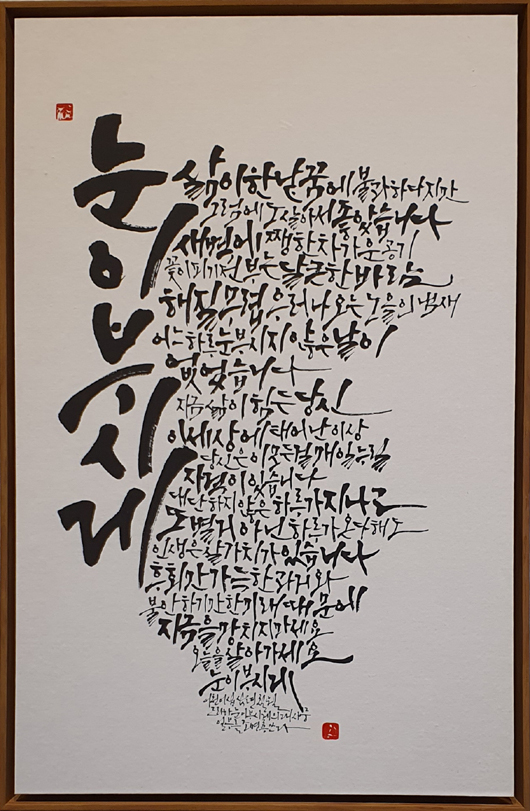 눈이부시게
삶이 한낱 꿈에 불과하다지만
그럼에도 살아서 좋았습니다
새벽에 쨍한 차가운 공기
꽃이 피기 전 부는 달큰한 바람
해질 무렵 우러나오는 노을의 냄새
어느 하루 눈부시지 않은 날이
없었습니다
지금 삶이 힘든 당신
이 세상에 태어난 이상
당신은 이 모든걸 매일 누릴
자격이 있습니다
대단하지 않은 하루가 지나고
또 별거 아닌 하루가 온다해도
인생은 살 가치가 있습니다
후회만 가득한 과거와
불안하기만한 미래때문에
지금을 망치지 마세요
오늘을 살아가세요
눈이부시게